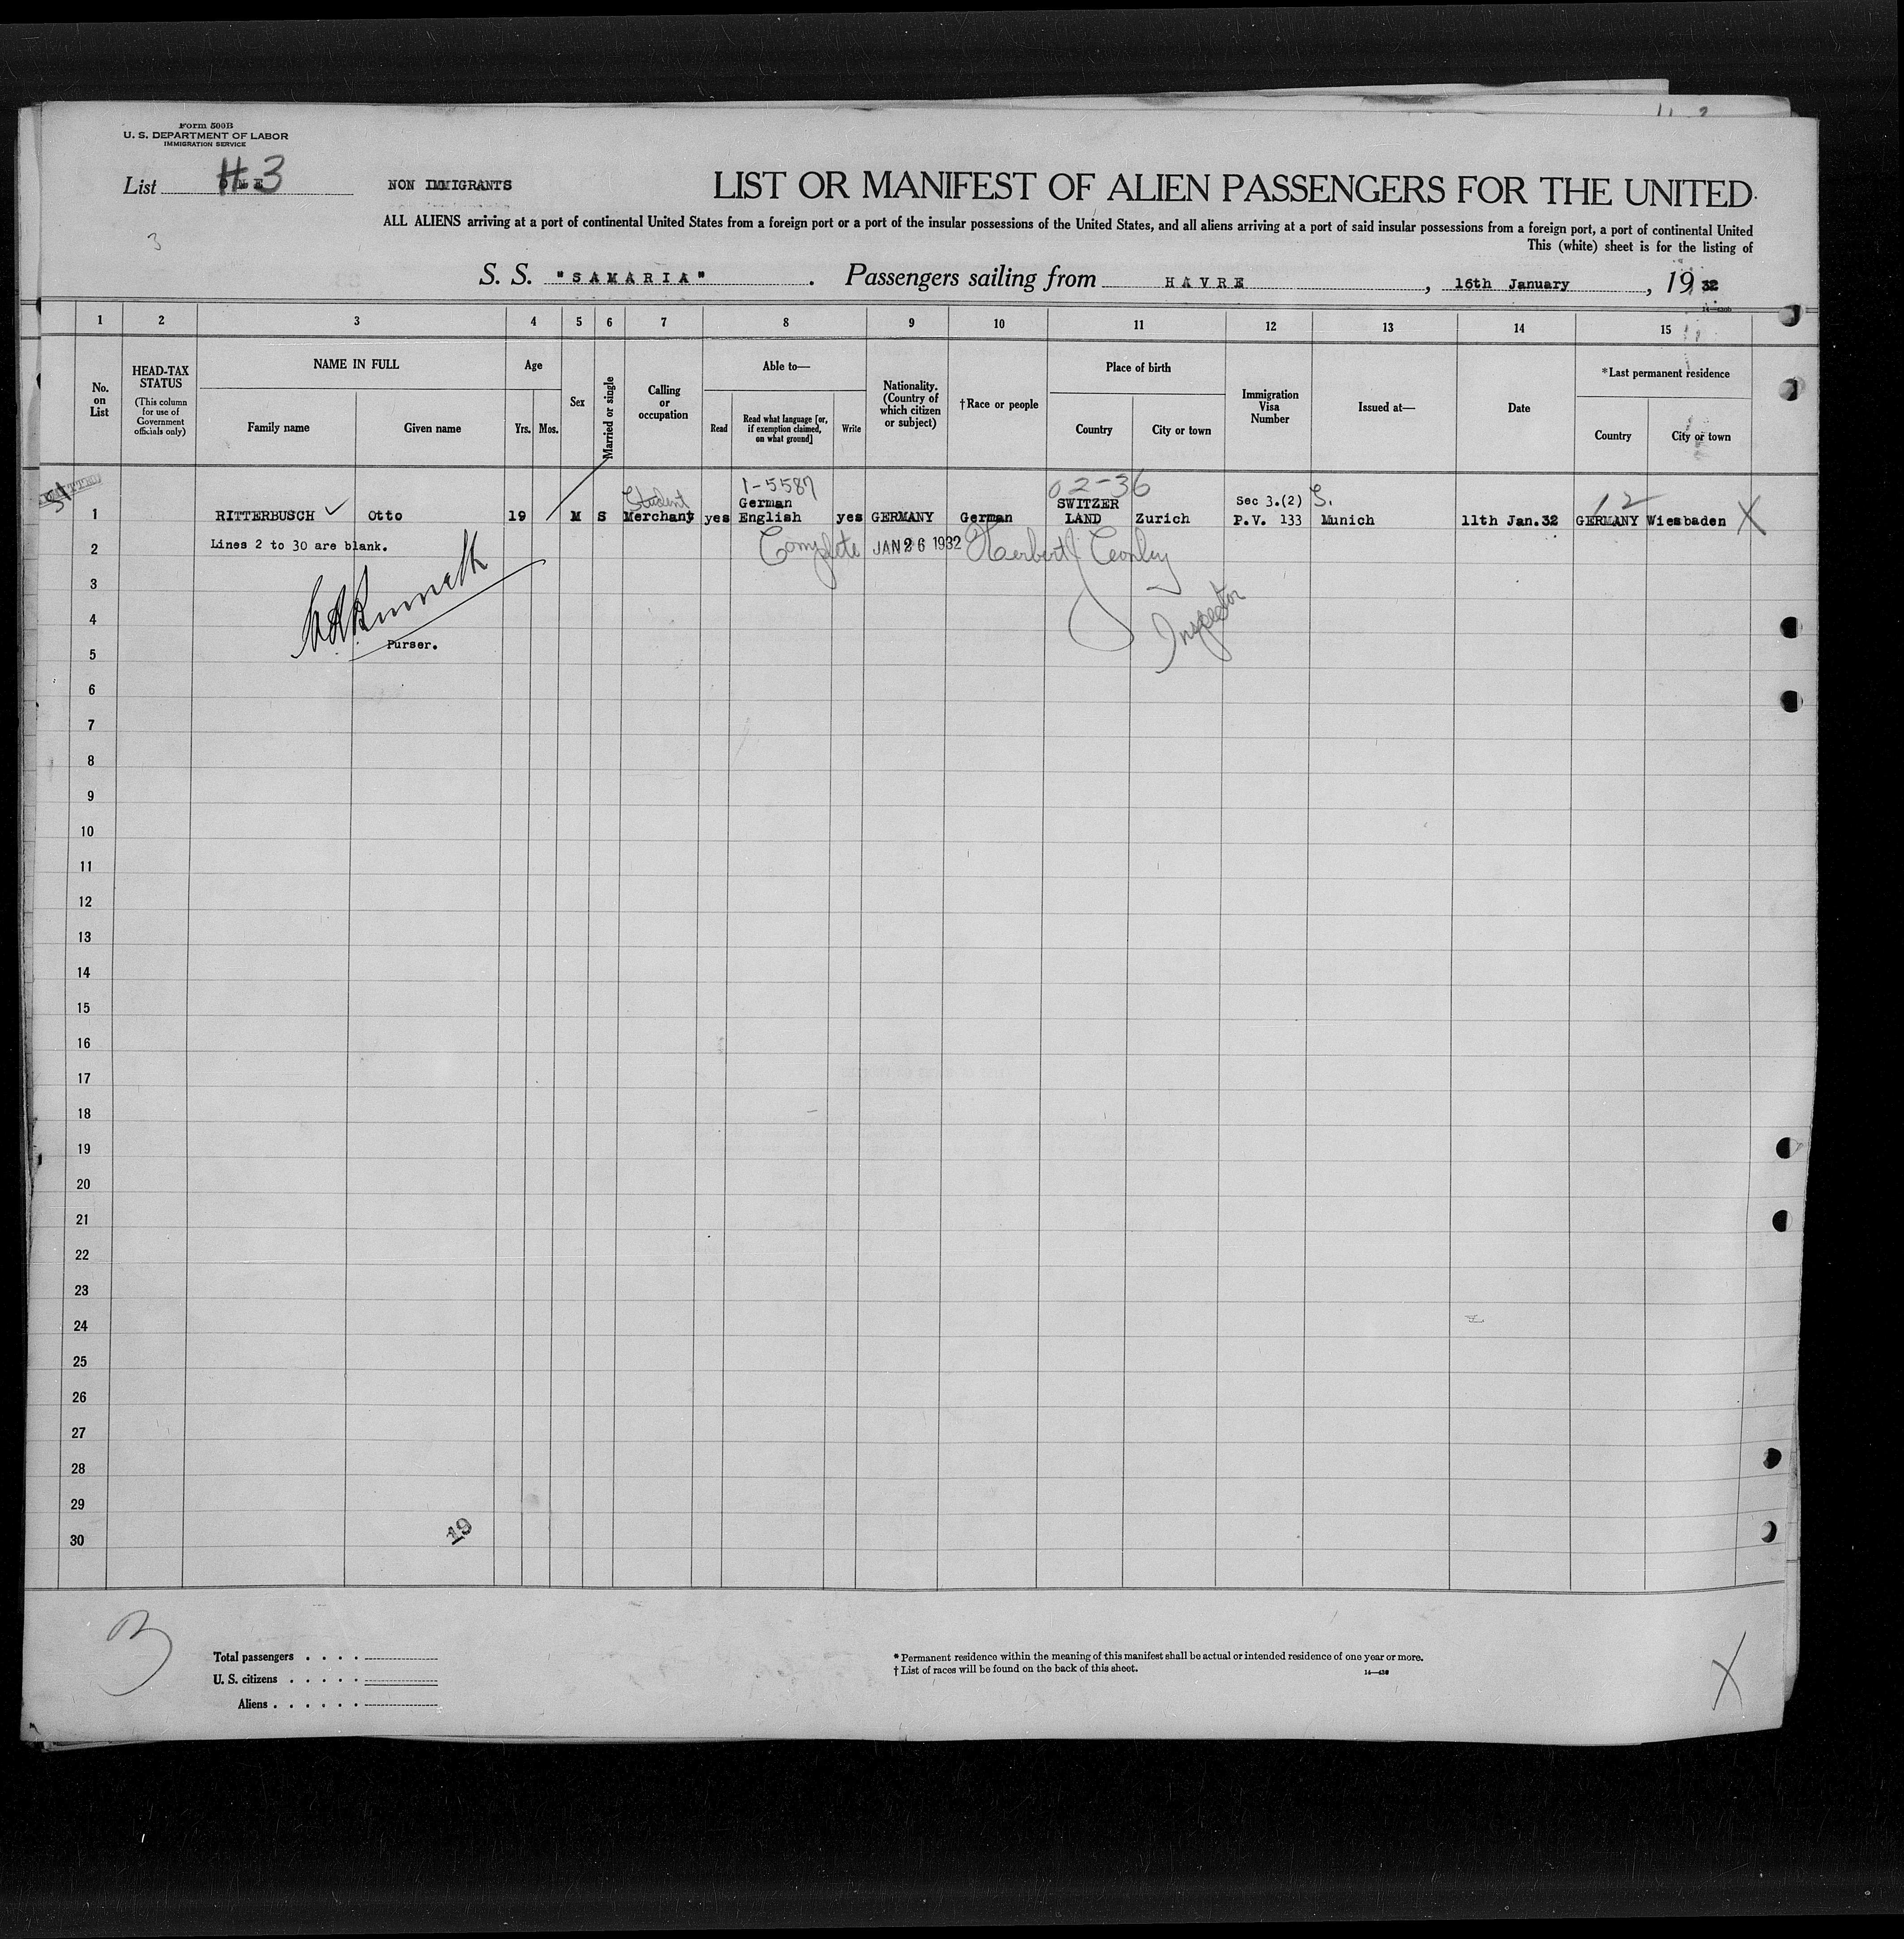 Form 500B
U. S. DEPARTMENT OF LABOR
IMMIGRATION SERVICE
List H 3
NON IMMIGRANTS
LIST OR MANIFEST OF ALIEN PASSENGERS FOR THE UNITED
ALL ALIENS arriving at a port of continental United States from a foreign port or a port of the insular possessions of the United States, and all aliens arriving at a port of said insular possessions from a foreign port, a port of continental United
This (white) sheet is for the listing of
3
S. S. "SAMARIA". Passengers sailing from HAVRE, 16th January, 1932
1 2 3 4 5 6 7 8 9 10 11 12 13 14 15
No. on List
HEAD-TAX STATUS (This column for use of Government officials only)
NAME IN FULL
Family name Given name
Age
Yrs. Mos.
Sex
Married or single
Calling or occupation
Able to—
Read
Read what language [or, if exemption claimed, on what ground]
Write
Nationality. (Country of which citizen or subject)
†Race or people
Place of birth
Country City or town
Immigration Visa Number
Issued at—
Date
*Last permanent residence
Country City or town
1-5587 02-36 12
Student German SWITZER Sec 3.(2) S.
1 RITTERBUSCH Otto 19 M S Merchant yes English yes GERMANY German LAND Zurich P.V. 133 Munich 11th Jan.32 GERMANY Wiesbaden X
2 Lines 2 to 30 are blank. Complete JAN 26 1932 Herbert
3
4 Inspector
5 Purser.
6
7
8
9
10
11
12
13
14
15
16
17
18
19
20
21
22
23
24
25
26
27
28
29
30
19
3
Total passengers . . . .
U. S. citizens . . . . .
Aliens . . . . . .
* Permanent residence within the meaning of this manifest shall be actual or intended residence of one year or more.
† List of races will be found on the back of this sheet.
X